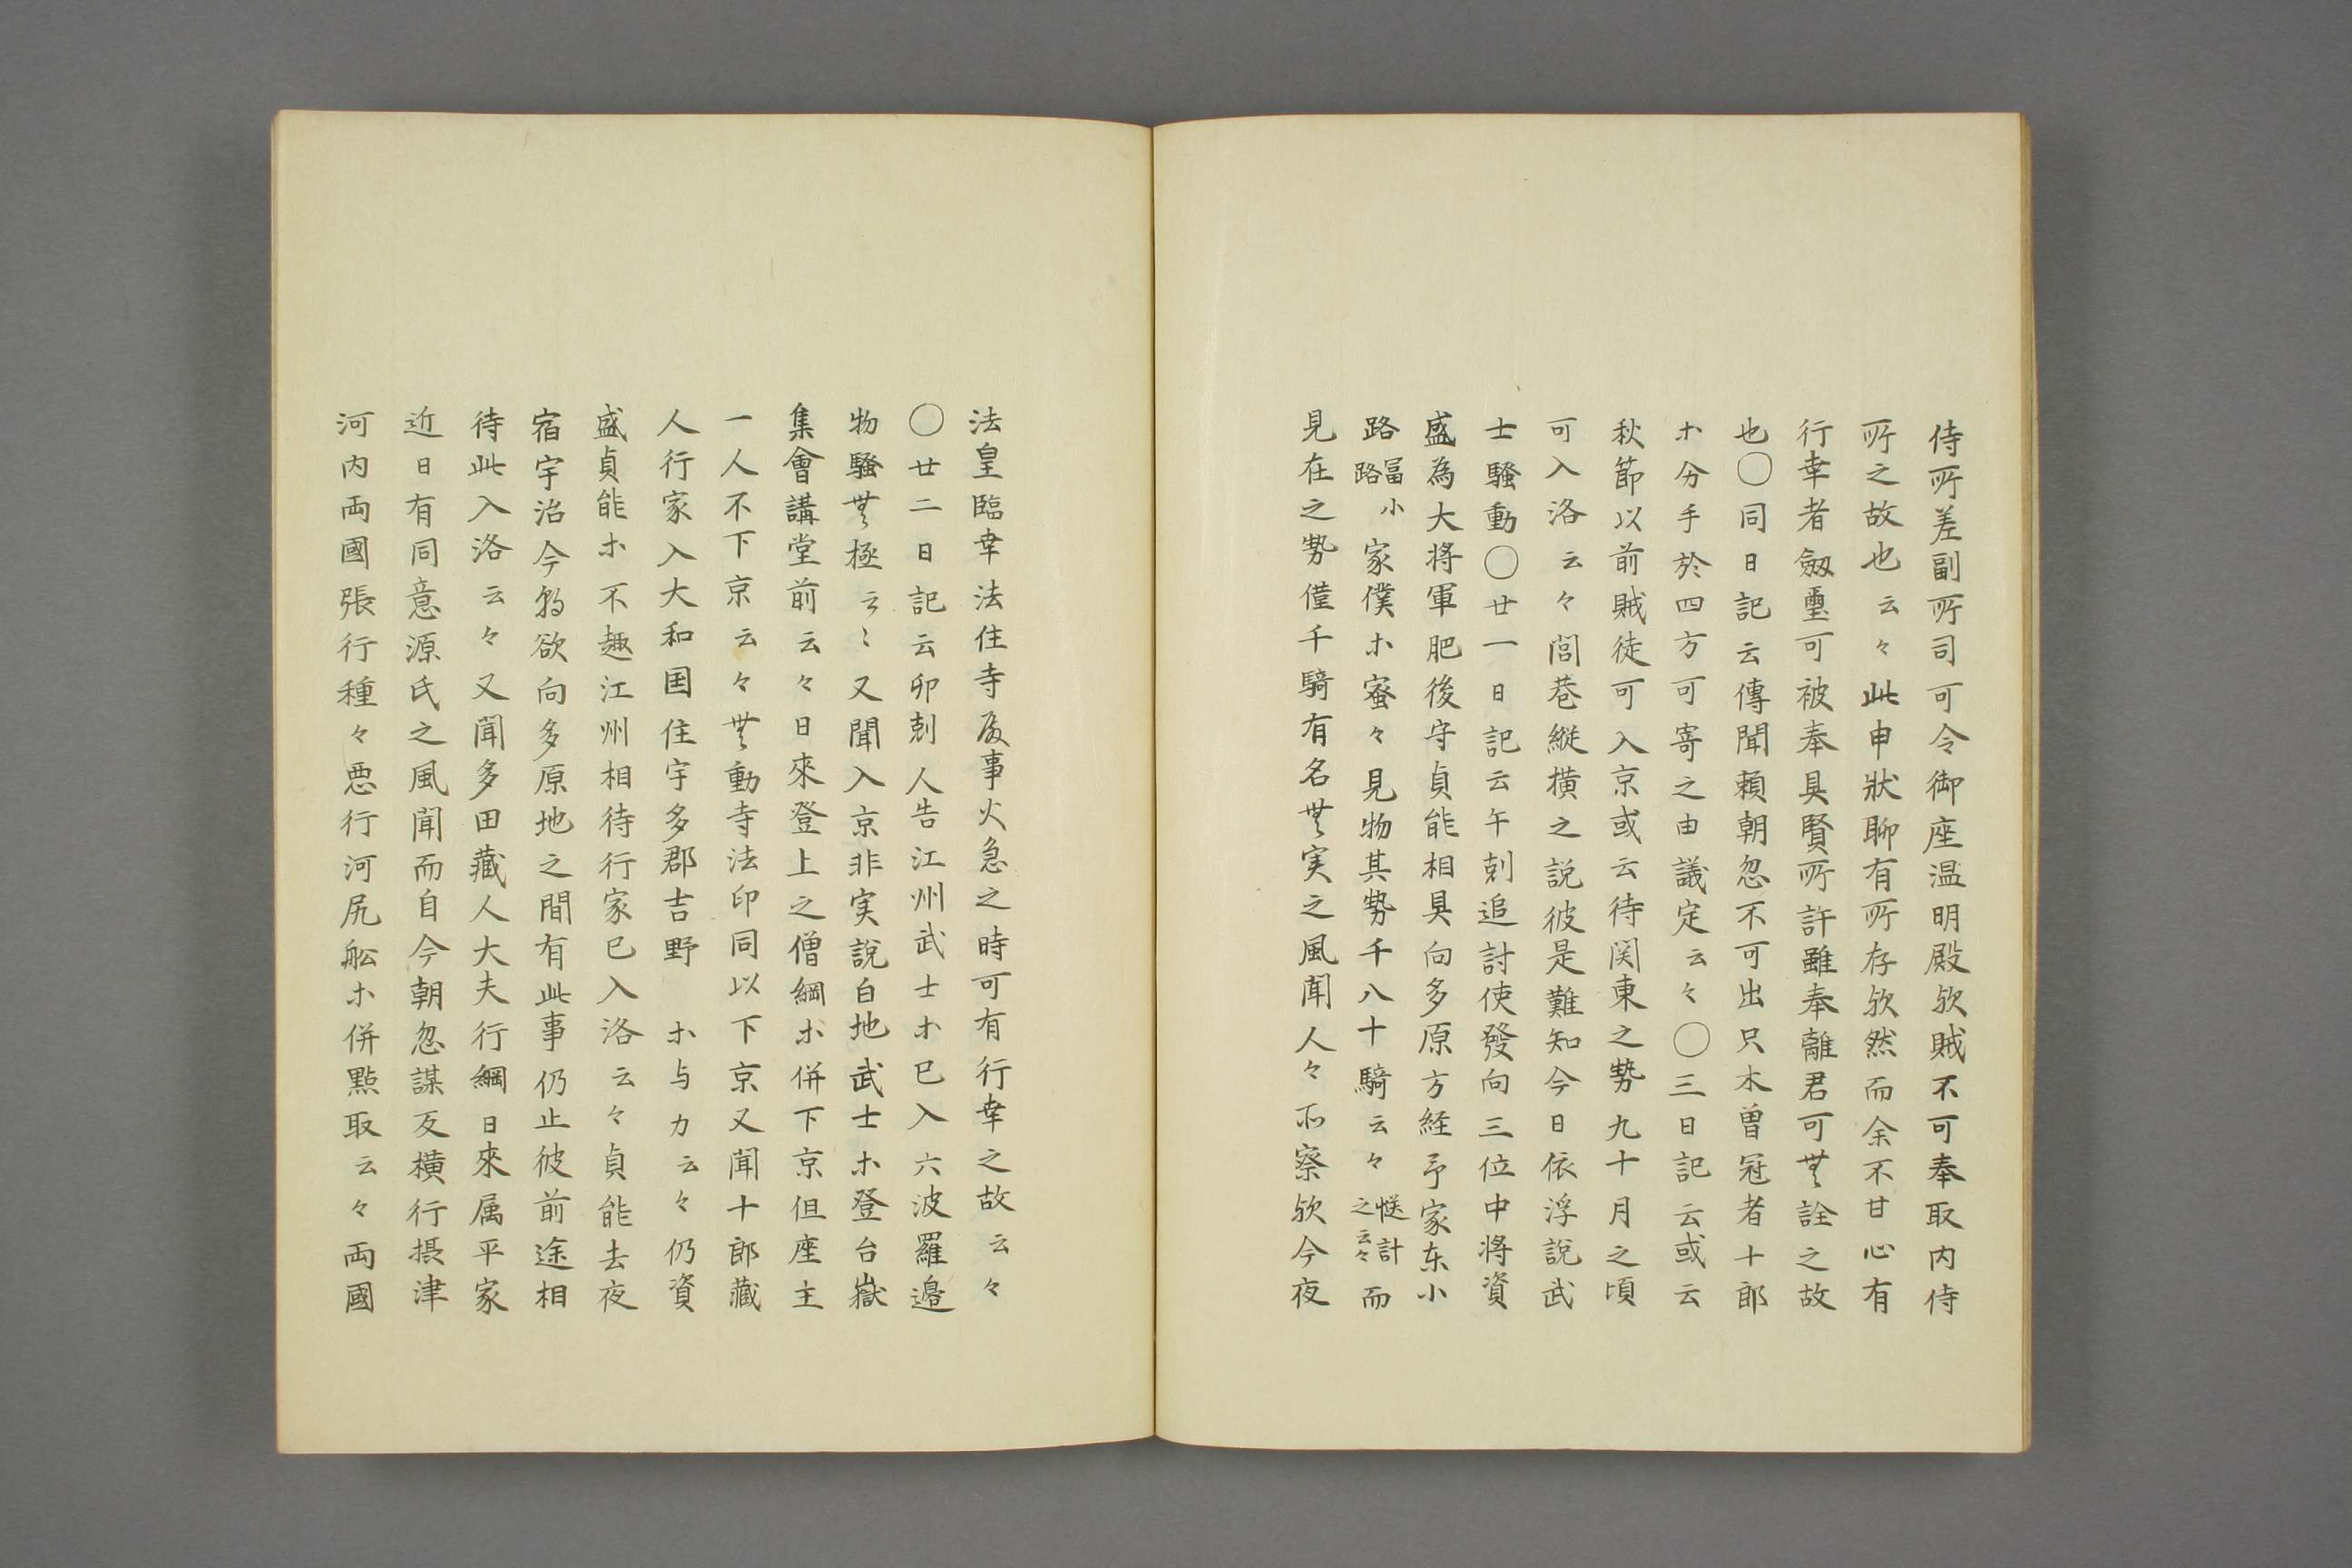 侍所差副所司可令御座温明殿欤賊不可奉取内侍
所之故也云々此申狀聊有所存欤然而余不甘心有
行幸者劔璽可被奉具賢所許雖奉離君可無詮之故
也〇同日記云傳聞頼朝忽不可出只木曽冠者十郎
ホ分手於四方可寄之由議定云々〇三日記云或云
秋節以前賊徒可入京或云待関東之勢九十月之頃
可入洛云々閭巷縦横之説彼是難知今日依浮説武
士騒動〇廿一日記云午剋追討使發向三位中将資
盛為大将軍肥後守貞能相具向多原方経予家东小
路冨小路家僕ホ蜜々見物其勢千八十騎云々慥計之云々而
見在之勢僅千騎有名無実之風聞人々所察欤今夜
法皇臨幸法住寺殿事火急之時可有行幸之故云々
〇廿二日記云卯剋人告江州武士ホ已入六波羅邉
物騒無極云〻又聞入京非実説白地武士ホ登台嶽
集會講堂前云々日來登上之僧綱ホ併下京但座主
一人不下京云々無動寺法印同以下京又聞十郎藏
人行家入大和国住宇多郡吉野 ホ与力云々仍資
盛貞能ホ不趣江州相待行家已入洛云々貞能去夜
宿宇治今朝欲向多原地之間有此事仍止彼前途相
待此入洛云々又聞多田藏人大夫行綱日來属平家
近日有同意源氏之風聞而自今朝忽謀反横行摂津
河内両國張行種々悪行河尻舩ホ併點取云々両國